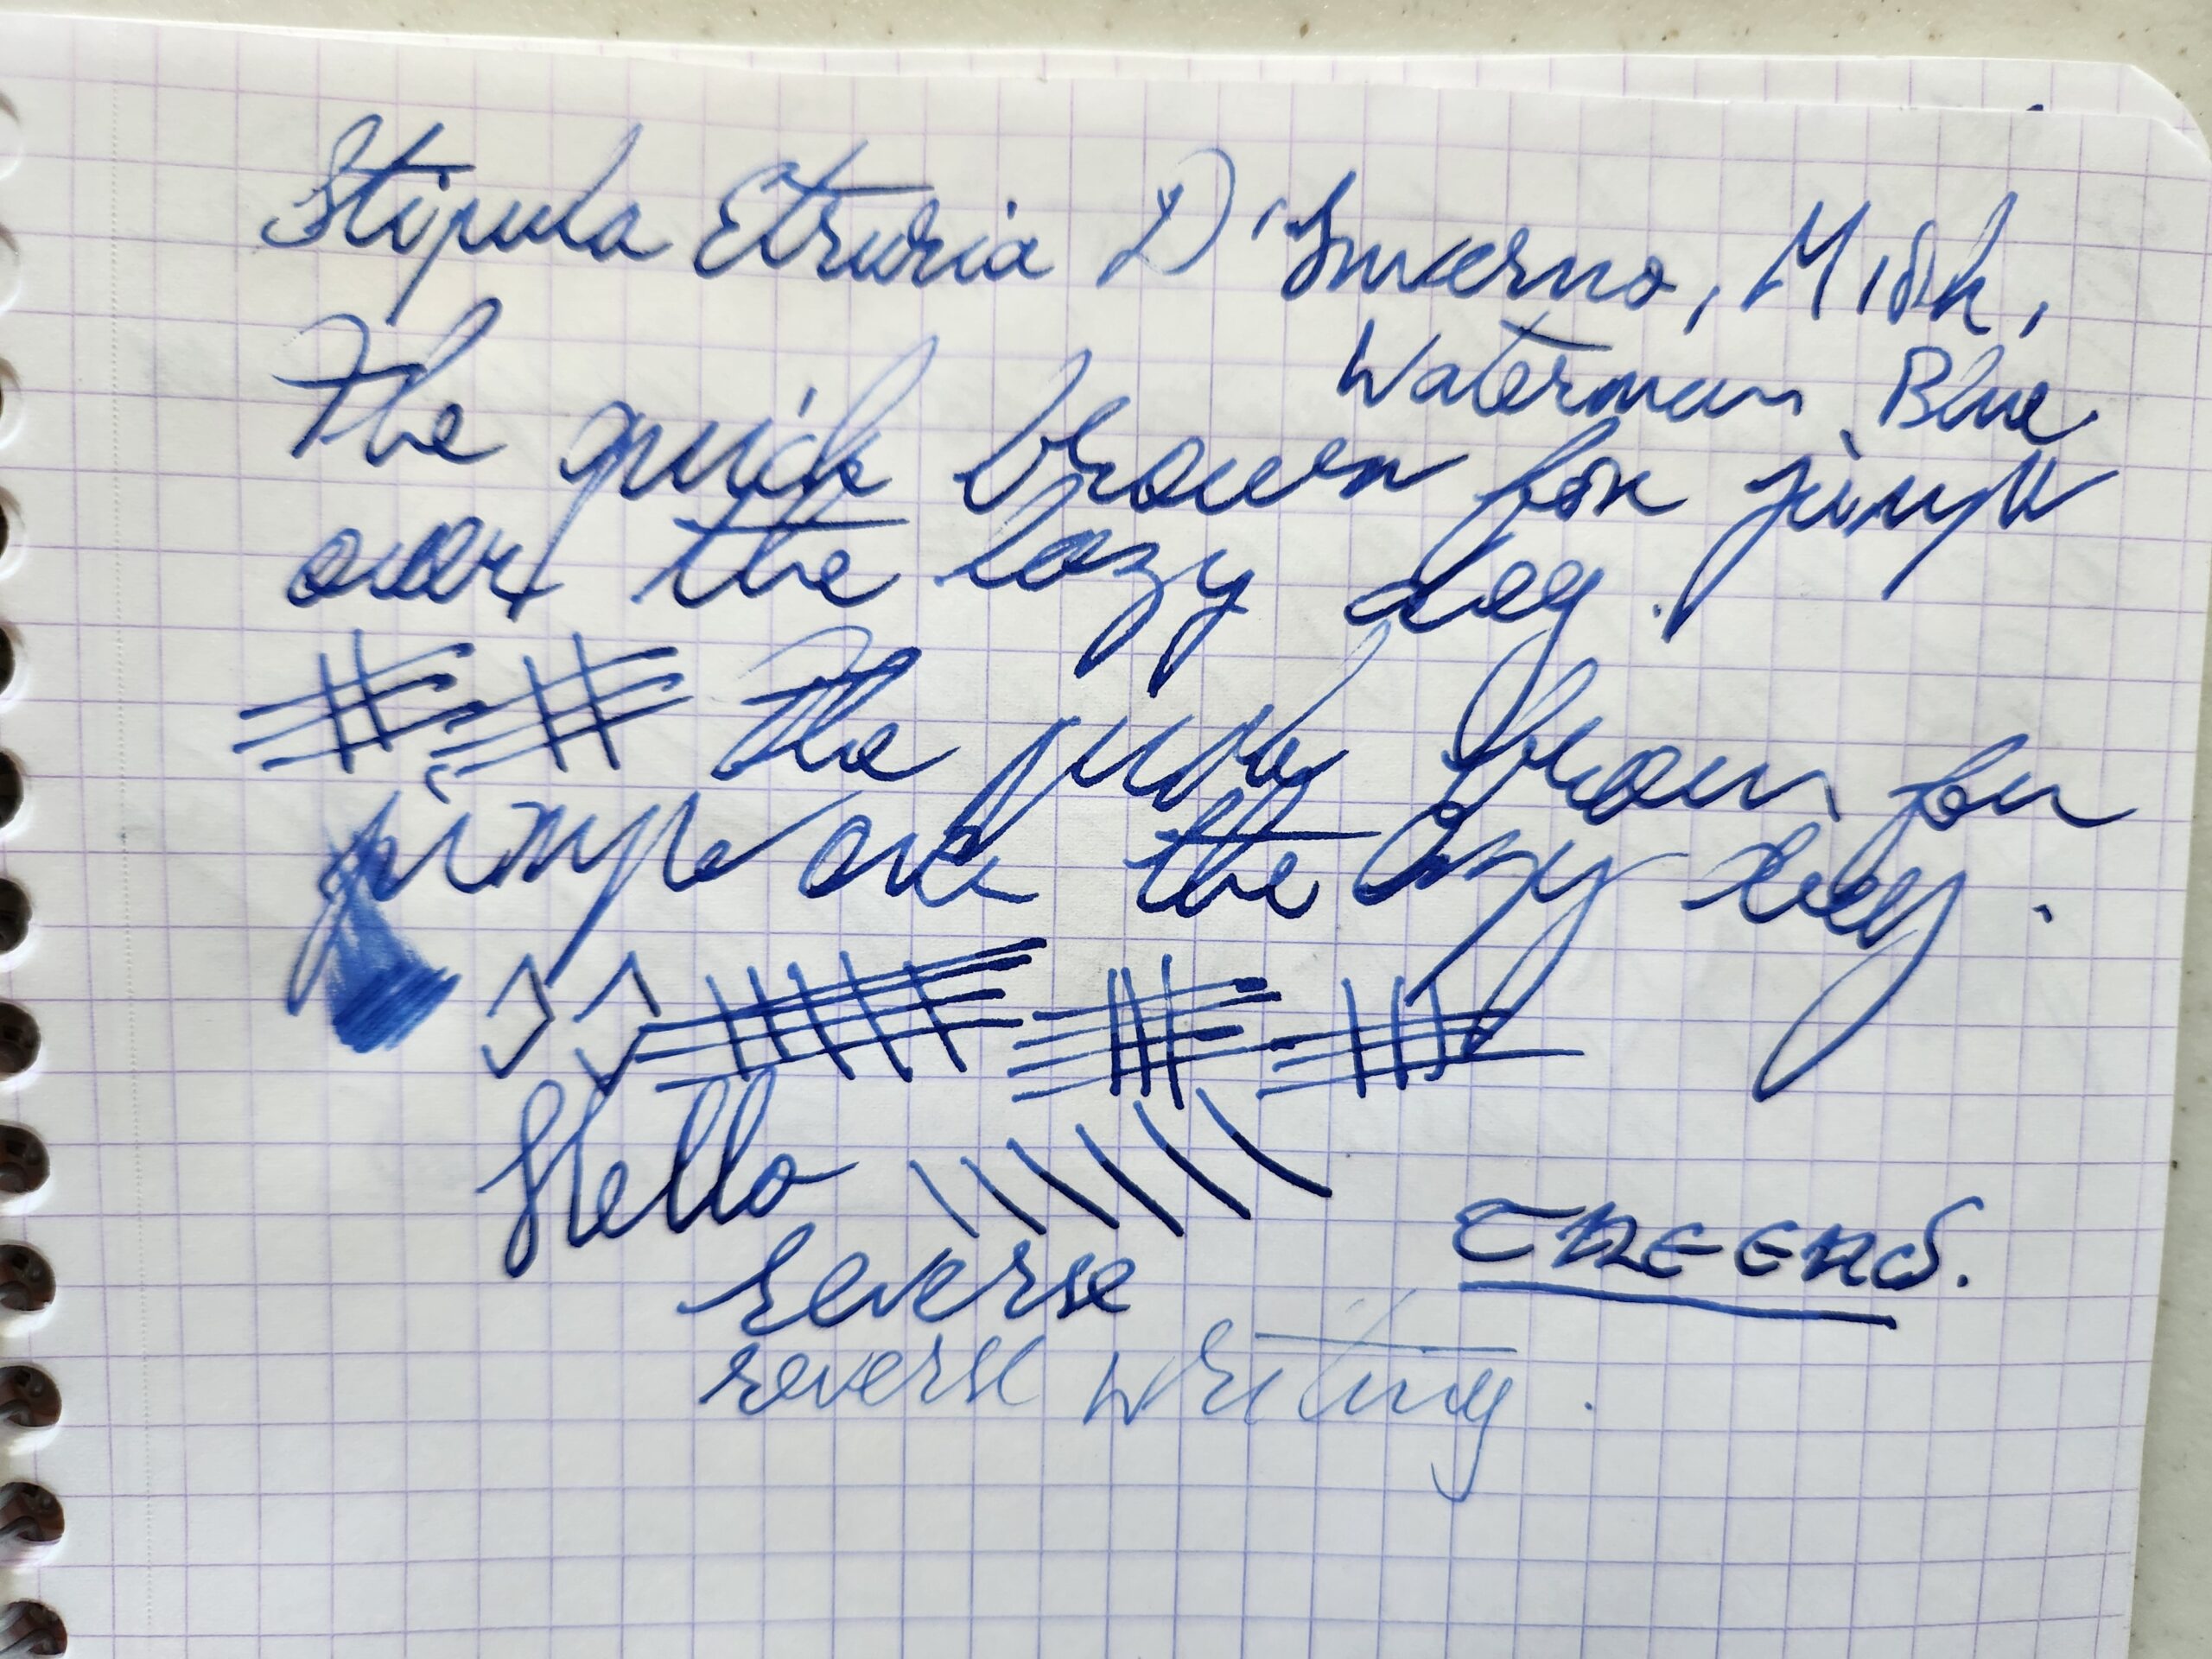 Stipula Etruria D'Inverno, M 18k,
Waterman Blue.
The quick brown fox jumps
over the lazy dog.
The quick brown fox
jumps over the lazy dog.
Hello
CHEERS.
reverse
reverse writing.